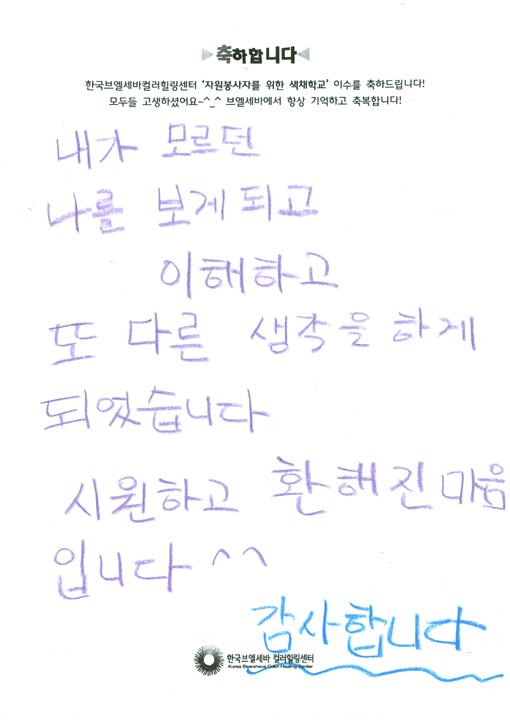 축하합니다
한국브엘세바컬러힐링센터 '자원봉사자를 위한 색채학교' 이수를 축하드립니다!
모두들 고생하셨어요~^_^ 브엘세바에서 항상 기억하고 축복합니다!
내가 모르던
나를 보게되고
이해하고
또 다른 생각을 하게
되었습니다
시원하고 환해진 마음
입니다 ^^
감사합니다
한국브엘세바 컬러힐링센터
Korea Beersheva Color Healing Center